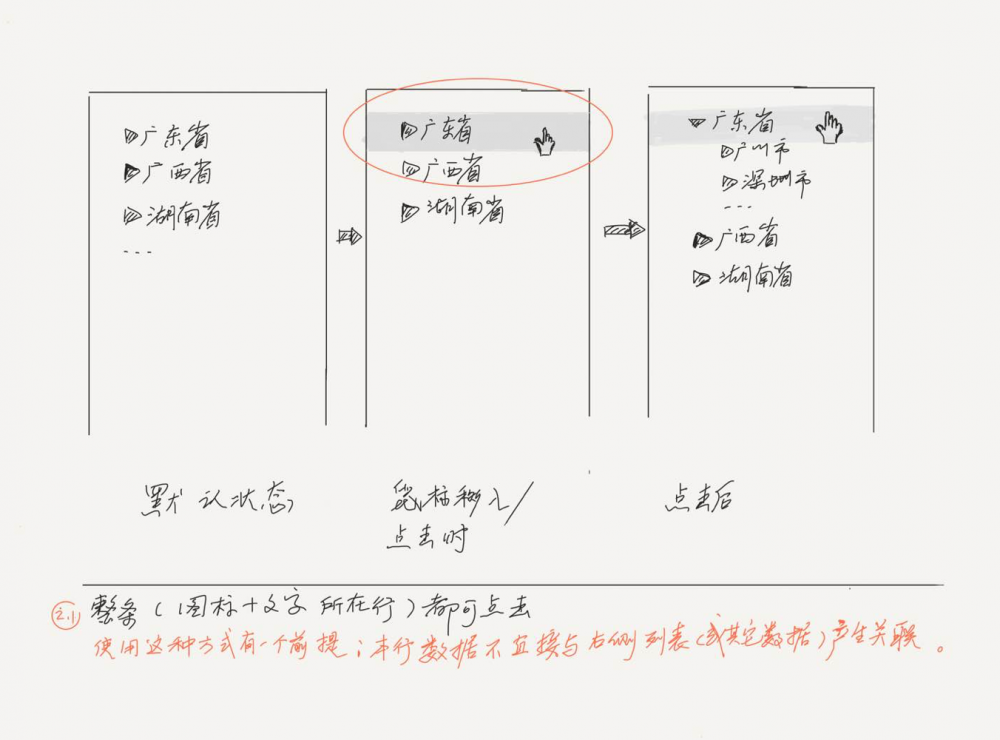 广东省
广西省
湖南省
...
广东省
广西省
湖南省
广东省
广州市
深圳市
...
广西省
湖南省
默认状态
鼠标移入/
点击时
点击后
2.1 整条（图标+文字 所在行）都可点击
使用这种方式有一个前提；本行数据不直接与右侧列表（或其它数据）产生关联。